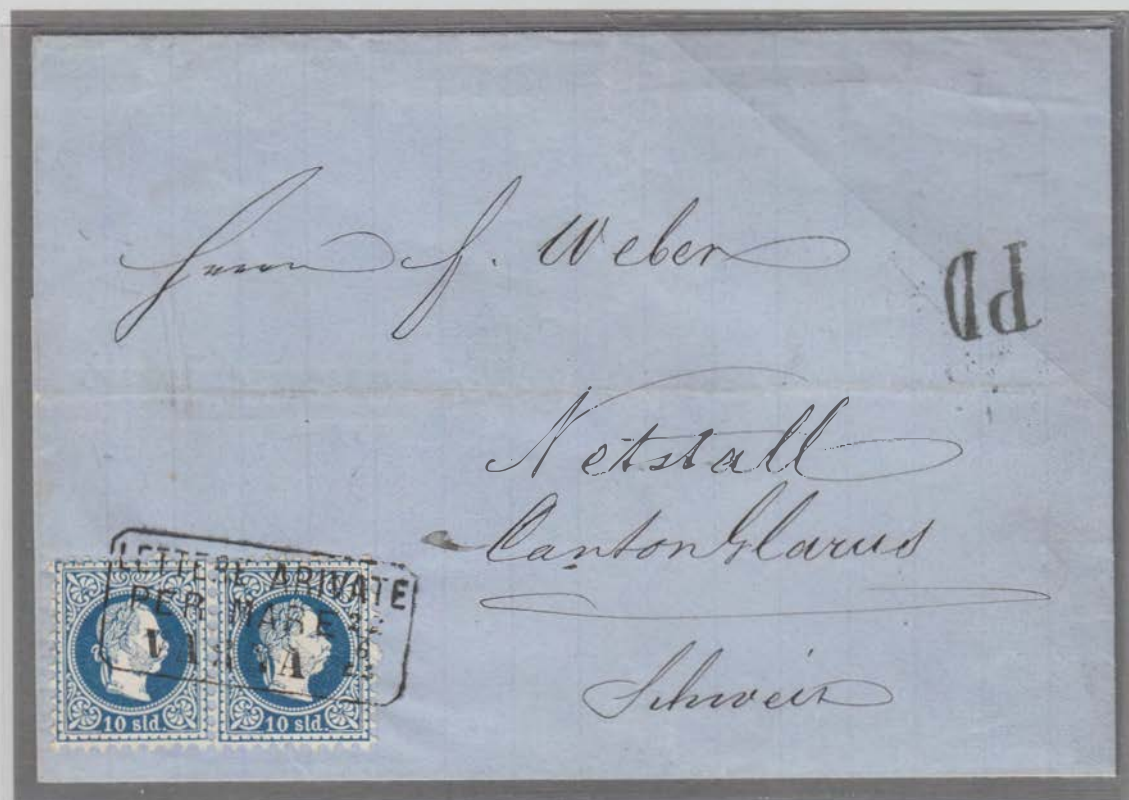 Herrn F. Weber
PD
Netstall
Canton Glarus
Schweiz
LETTERE ARIVATE
PER MARE 22
VARNA 6
10 sld. 10 sld.